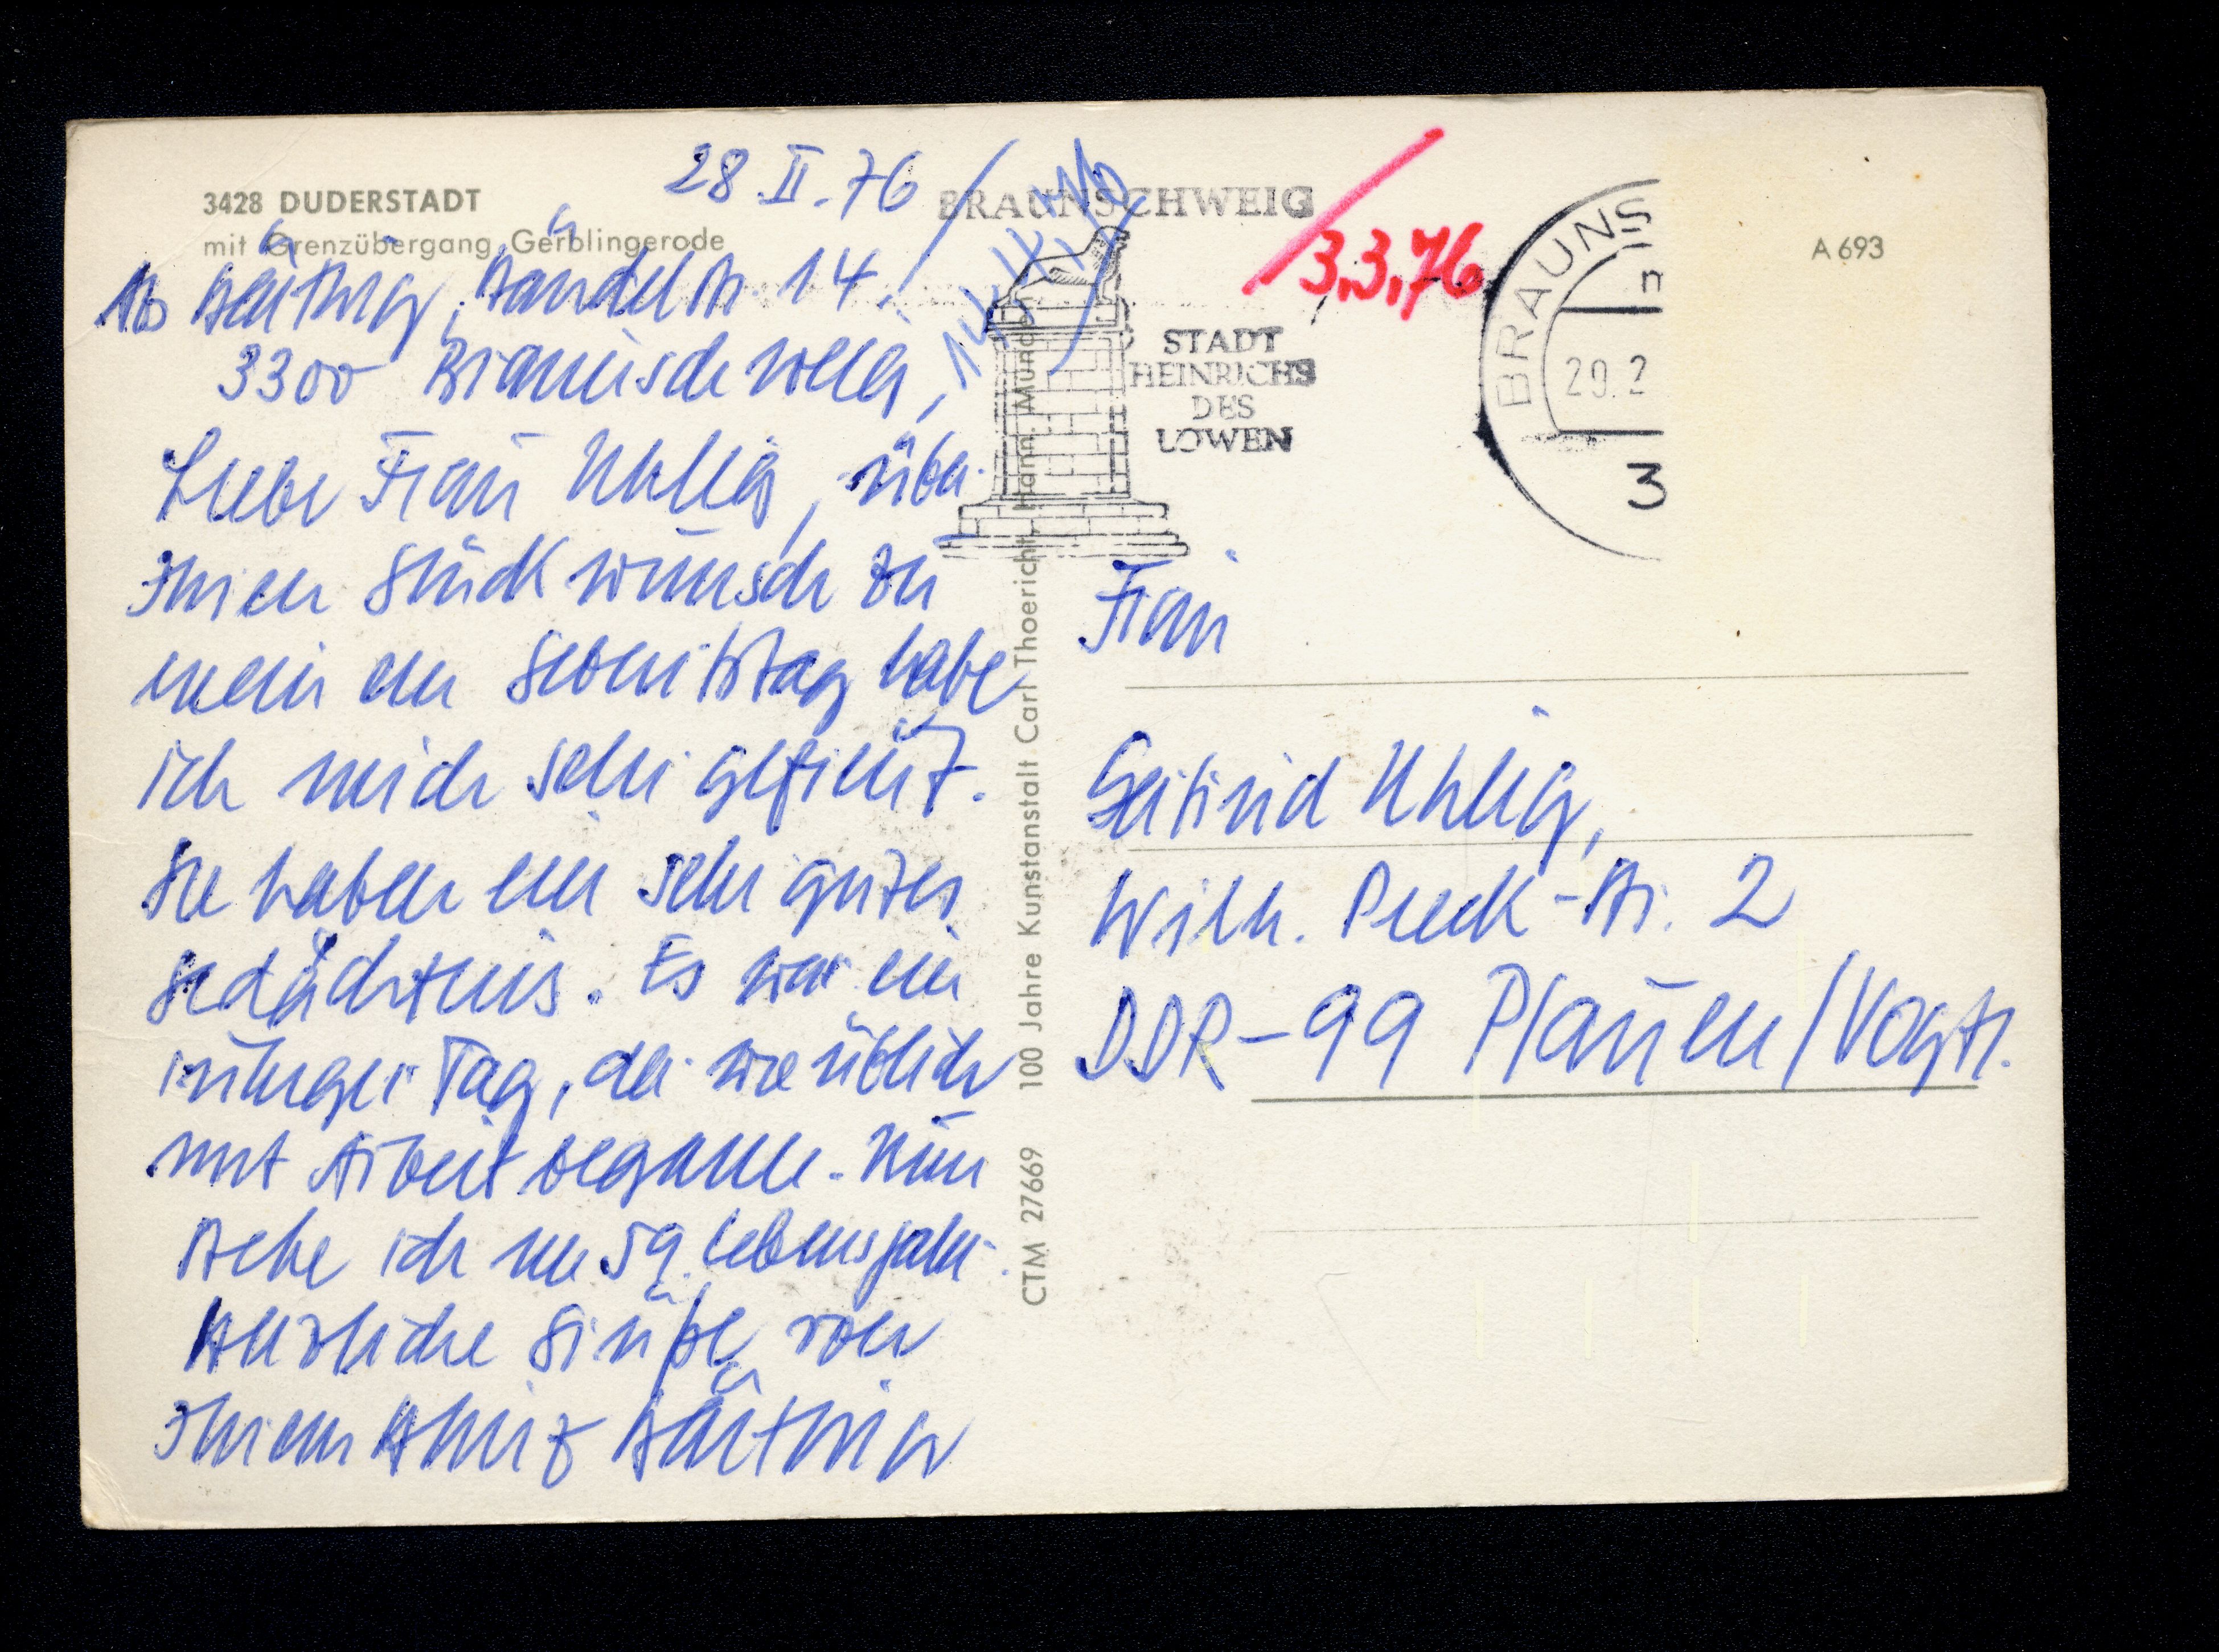 3428 DUDERSTADT
mit Grenzübergang Gerblingerode
28.II.76
Händelstr. 14
3300 Braunschweig,
Liebe Frau Uhlig, über
Ihren Glückwunsch zu
meinem Geburtstag habe
ich mich sehr gefreut.
Sie haben ein sehr gutes
Gedächtnis. Es war ein
ruhiger Tag, der wie üblich
mit Arbeit begann. Nun
stehe ich im 59. Lebensjahr.
Herzliche Grüße von
Ihrem
CTM 27669 100 Jahre Kunstanstalt Carl Thoericht, Hann. Münden
BRAUNSCHWEIG
STADT
HEINRICHS
DES
LÖWEN
3.3.76
BRAUNS
29.2
3
A 693
Frau
Gertrud Uhlig,
Wilh. Pieck-Str. 2
DDR-99 Plauen/Vogtl.